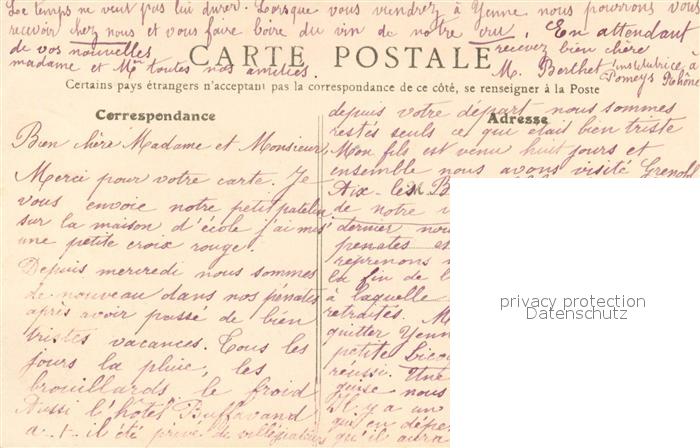 Le temps ne veut pas lui durer. Lorsque vous viendrez à Yenne nous pourrons vous
recevoir chez nous et vous faire boire du vin de notre cru. En attendant
de vos nouvelles recevez bien chère
madame et Mr toutes nos amitiés.
M. Berthet institutrice à
Pomeys Rhône
CARTE POSTALE
Certains pays étrangers n'acceptant pas la correspondance de ce côté, se renseigner à la Poste
Correspondance
Bien chère Madame et Monsieur,
Merci pour votre carte. Je
vous envoie notre petit patelin
sur la maison d'école j'ai mis
une petite croix rouge.
Depuis mercredi nous sommes
de nouveau dans nos pénates
après avoir passé de bien
tristes vacances. Tous les
jours la pluie, les
brouillards le froid
Aussi l'hôtel Buffavand
a-t-il été privé de villégiateurs
Adresse
depuis votre départ nous sommes
restés seuls ce qui était bien triste
Mon fils est venu huit jours et
ensemble nous avons visité Grenobl
Aix-les-B
de notre
dernier nou
penates es
reprenons
la fin de l
à laquelle
retraités. M
quitter Yenne
petite
réussi. Une
nous
Il y a un
qui en dépe
qu'il aura
privacy protection
Datenschutz